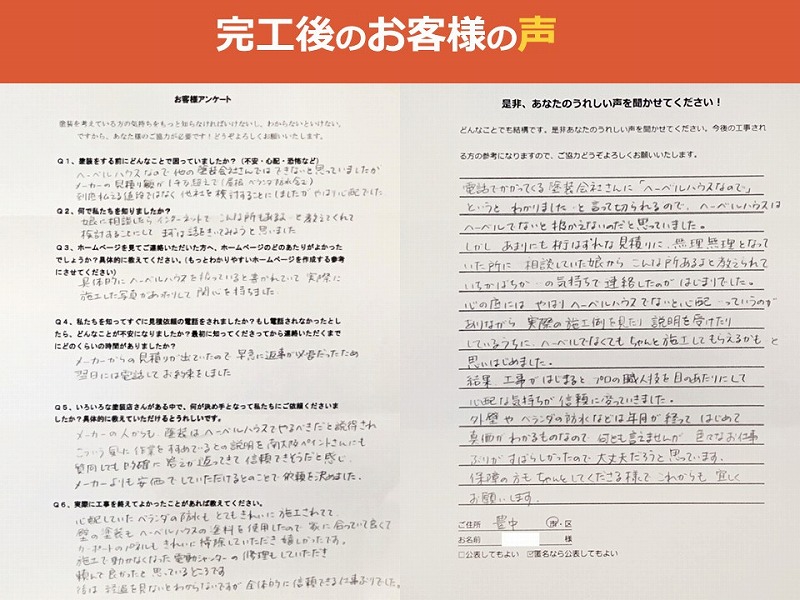 完工後のお客様の声
お客様アンケート
塗装を考えている方の気持ちをもっと知らなければいけないし、わからないといけない。
ですから、あなた様のご協力が必要です！どうぞよろしくお願いいたします。
Q1、塗装をする前にどんなことで困っていましたか？（不安・心配・恐怖など）
ヘーベルハウスなので他の塗装会社さんではできないと思っていましたが
メーカーの見積り額が
到底払える値段ではなく 他社を検討することにしましたがやはり心配でした
Q2、何で私たちを知りましたか？
娘に相談したら インターネットで こんな所もあるよ と教えてくれて
検討することにして まずは話をきいてみようと思いました
Q3、ホームページを見てご連絡いただいた方へ、ホームページのどのあたりがよかった
でしょうか？具体的に教えてください。（もっとわかりやすいホームページを作成する参考
にさせてください）
具体的に ヘーベルハウスを扱っていると書かれていて 実際に
施工した写真があったりして 関心を持ちました
Q4、私たちを知ってすぐに見積依頼の電話をされましたか？もし電話されなかったとし
たら、どんなことが不安になりましたか？最初に知ってくださってから連絡いただくまで
にどのくらいの時間がありましたか？
メーカーからの見積りが出ていたので 早急に返事が必要だったため
翌日には電話して お約束をしました
Q5、いろいろな塗装店さんがある中で、何が決め手となって私たちにご依頼くださいま
したか？具体的に教えていただけるとうれしいです。
メーカーの人からも 塗装は ヘーベルハウスでやるべきだと説得され
こういう風に 作業を 進めているとの説明を 南大阪ペイントさんにも
質問しても 的確に 答えが返ってきて 信頼できそうだと感じ
メーカーよりも安価で していただけるとのことで 依頼を決めました。
Q6、実際に工事を終えてよかったことがあれば教えてください。
心配していたベランダの防水も とてもきれいに 施工されてて
壁の塗装も ヘーベルハウスの塗料を使用したので 家に合っていて良くて
カーポートのパネルもきれいに掃除していただき 嬉しかったです。
施工で動かなくなった電動シャッターの 修理もしていただき
頼んで良かったと 思っているところです
後は 経過を見ないとわからないですが 全体的に信頼できる仕事ぶりでした。
是非、あなたのうれしい声を聞かせてください！
どんなことでも結構です。是非あなたのうれしい声を聞かせてください。今後の工事され
る方の参考になりますので、ご協力どうぞよろしくお願いいたします。
電話でかかってくる塗装会社さんに「ヘーベルハウスなので」
というと わかりました…と言って切られるので、ヘーベルハウスは
ヘーベルでないと扱かえないのだと思っていました。
しかし あまりにも桁はずれな見積りに、無理無理となって
いた所に 相談していた娘から こんな所あるよ と教えられて
いちかばちか…の気持ちで 連絡したのが はじまりでした。
心の底には やはりヘーベルハウスでないと心配…っていうのが
ありながら 実際の施工例を見たり 説明を受けたり
しているうちに、ヘーベルでなくても ちゃんと施工してもらえるかもと
思いはじめました。
結果 工事がはじまると プロの職人技を目のあたりにして
心配な気持ちが 信頼に変っていきました。
外壁や ベランダの防水などは年月が経って はじめて
真価がわかるものなので 何とも言えませんが 色々なお仕事
ぶりがすばらしかったので 大丈夫だろうと思っています。
保障の方も ちゃんとしてくださる様で これからも 宜しく
お願いします。
ご住所 豊中 市・区
お名前 様
□公表してもよい ☑匿名なら公表してもよい